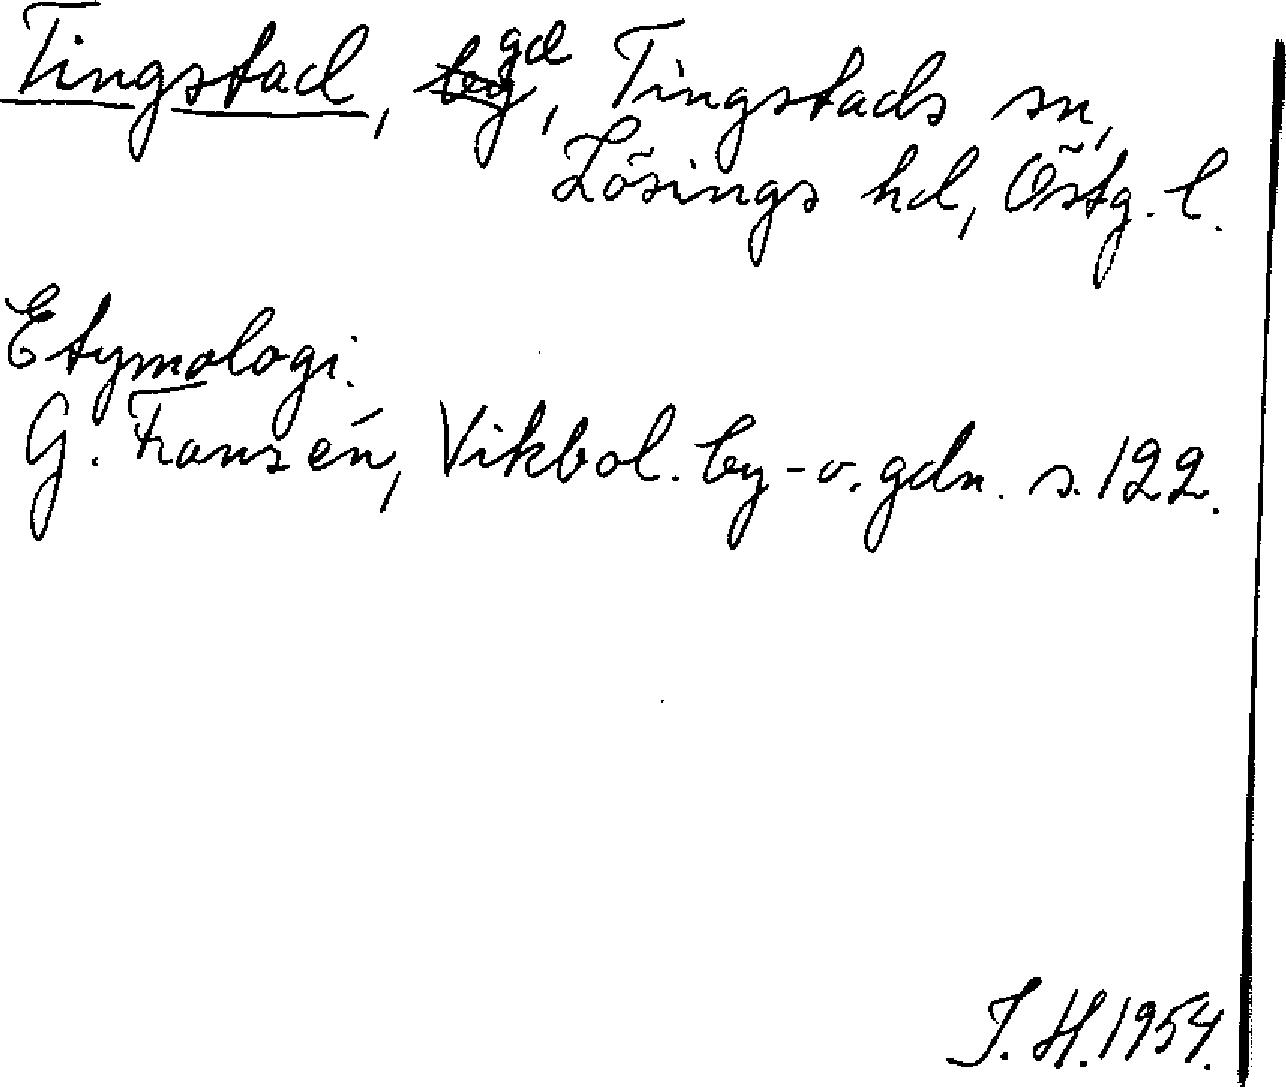 Tingstad, gd, Tingstads sn,
Lösings hd, Östg. l.
Etymologi.
G. Franzén, Vikbol. by- o. gdn. s. 122.
J. H. 1954.